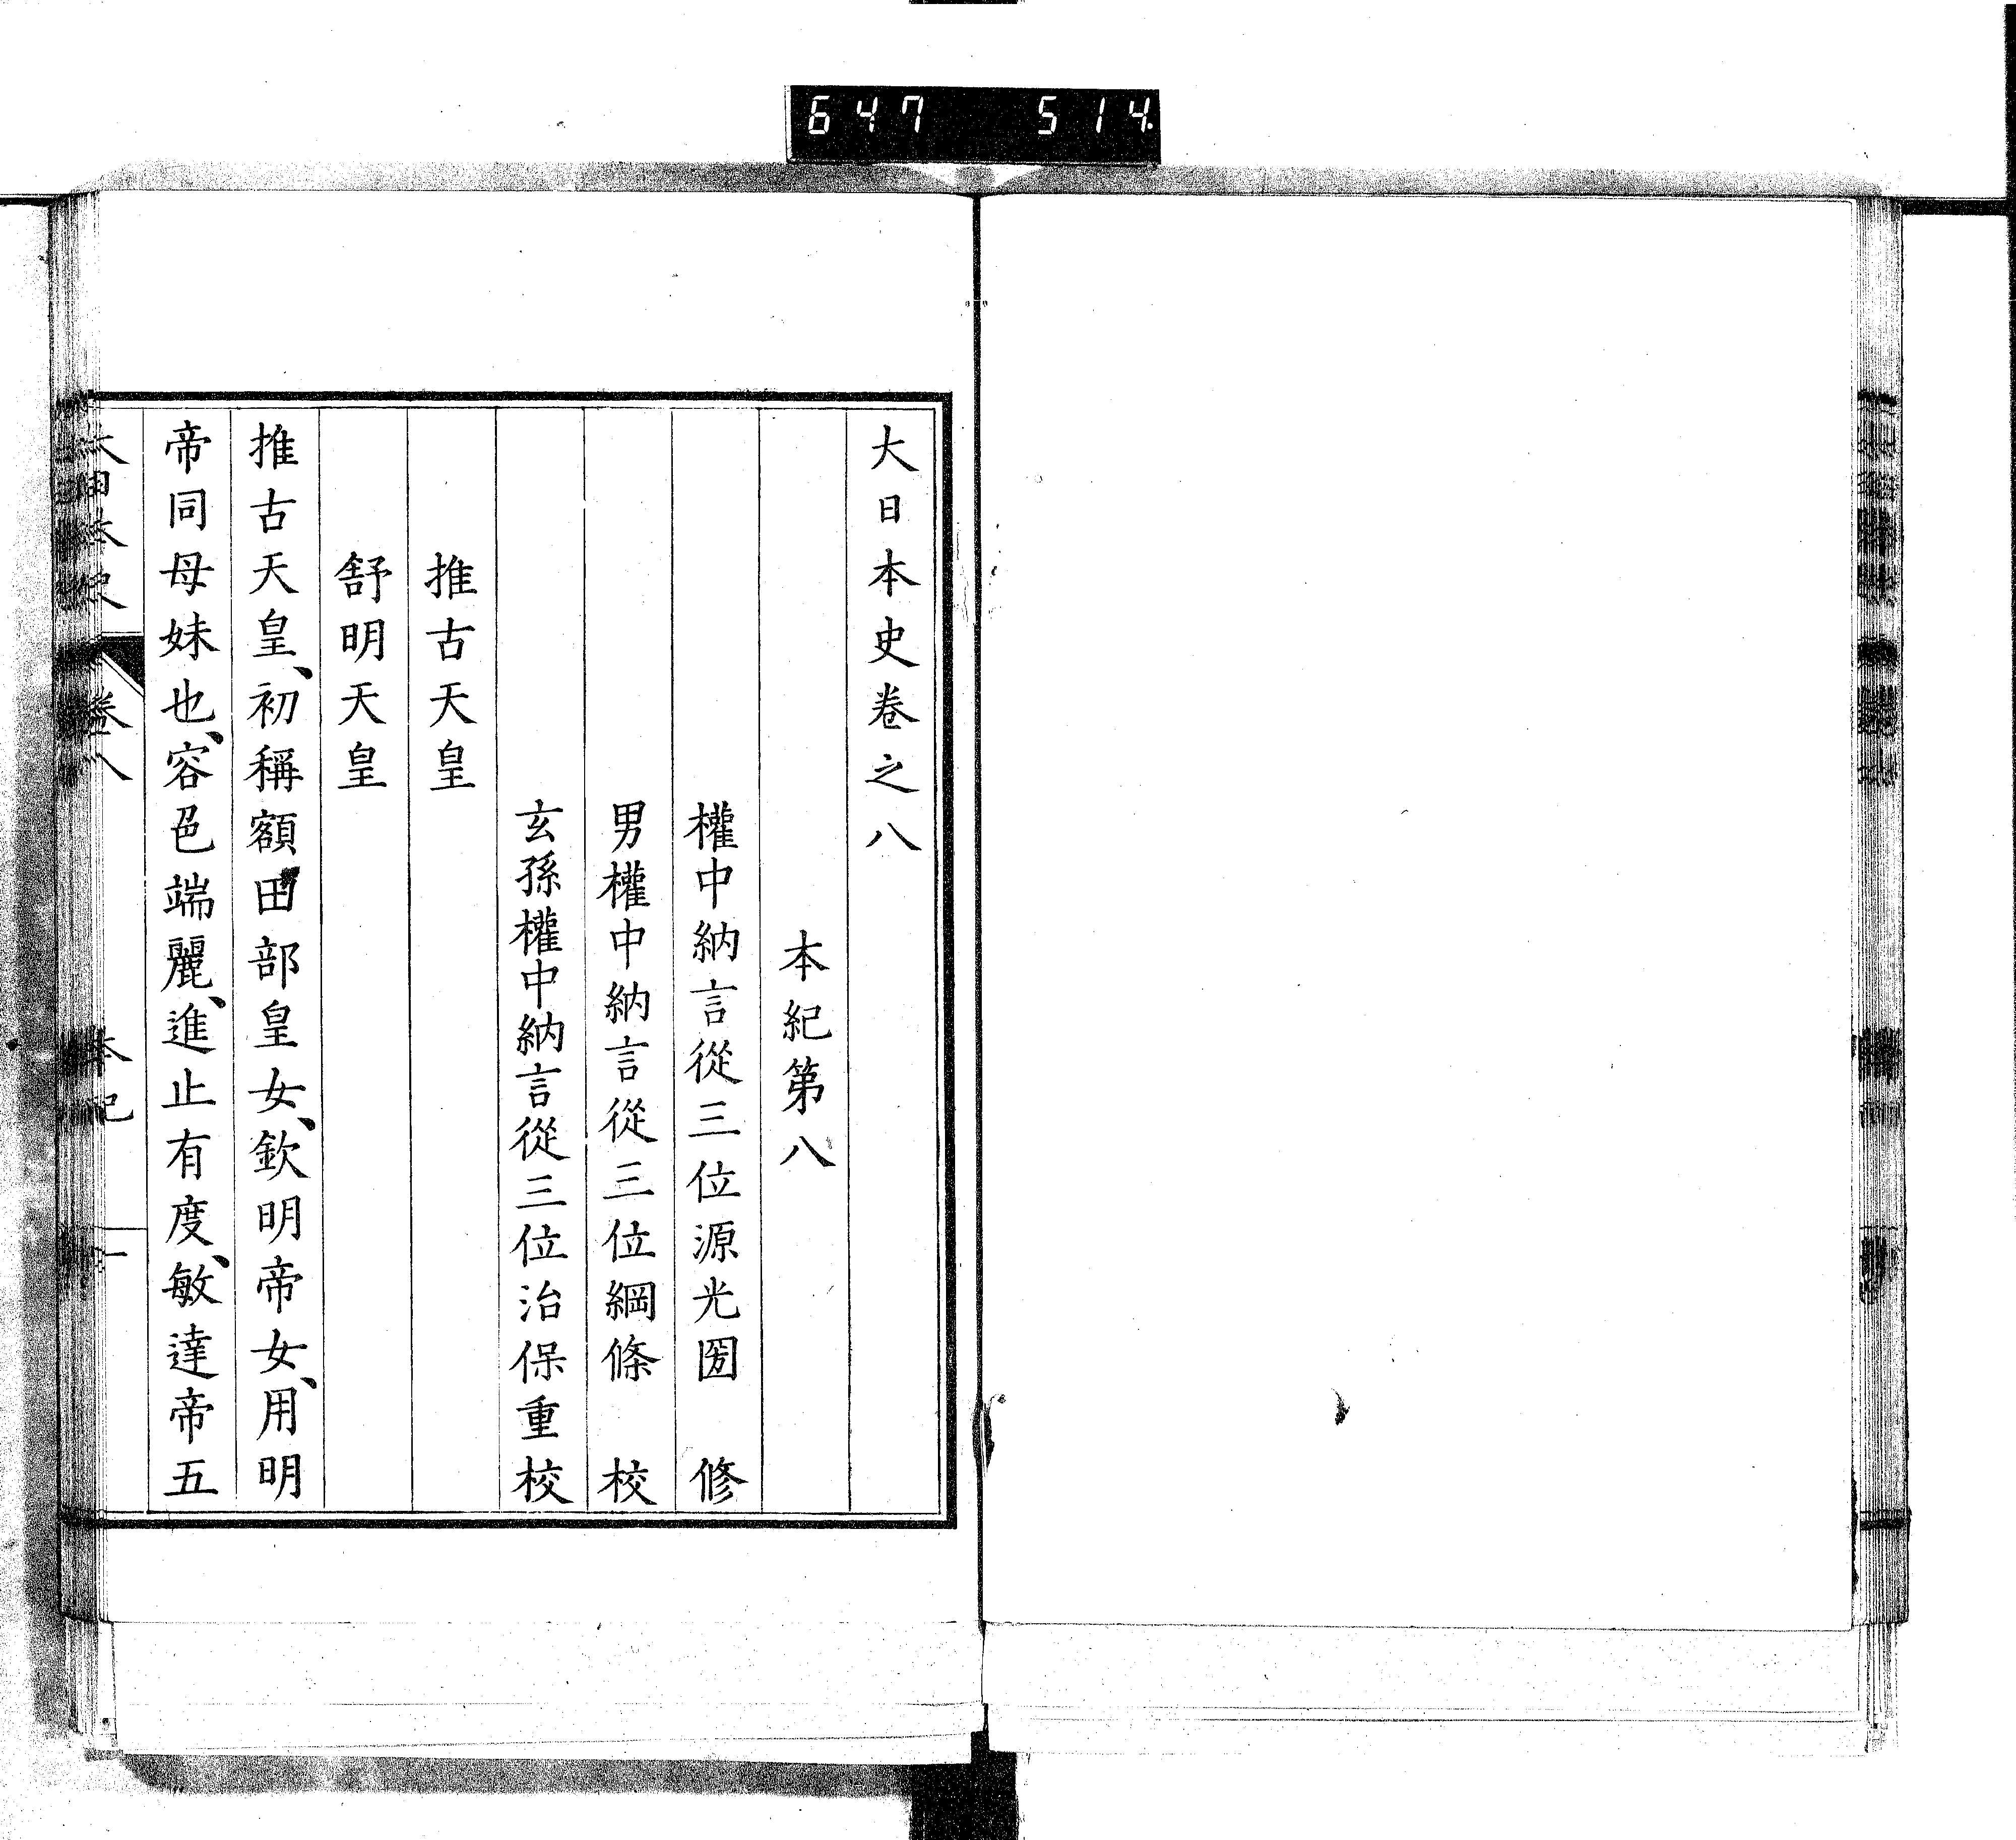 647 514
大日本史卷之八
本紀第八
權中納言從三位源光圀 修
男權中納言從三位綱條 校
玄孫權中納言從三位治保重校
推古天皇
舒明天皇
推古天皇、初稱額田部皇女、欽明帝女、用明
帝同母妹也、容色端麗、進止有度、敏達帝五
大日本史 卷八 本紀 一